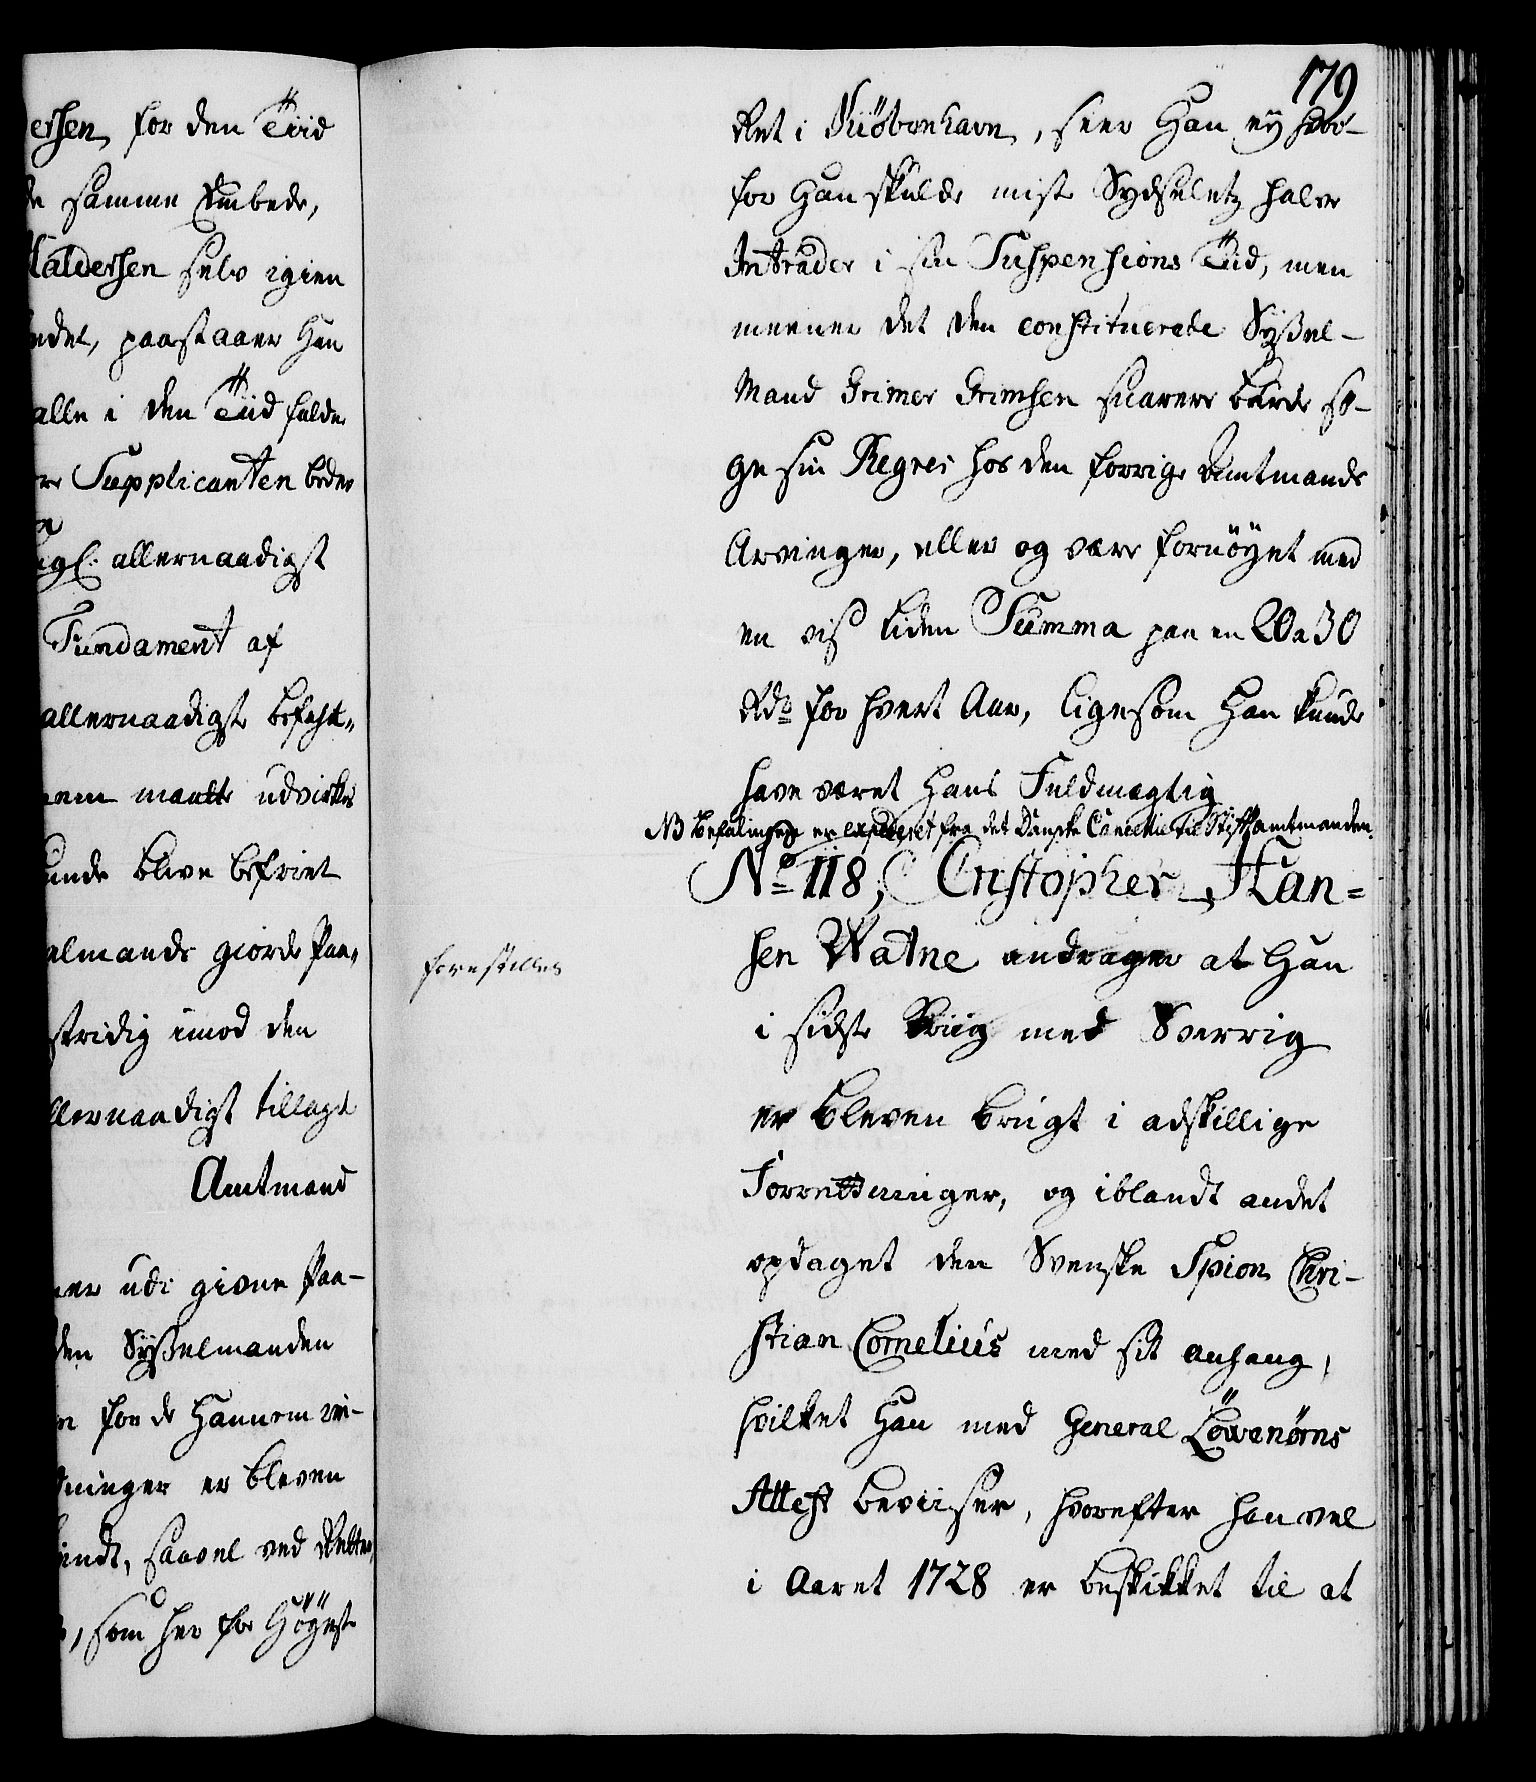 ersen, for den Tiid
de samme Embede,
Haldersen selv igien
ndet, paastaaer Han
alle i den Tiid faldne
Supplicanten beder
Kongl. allernaadigst
Fundament af
allernaadigst befahl-
nem maatte udvirkes
unde blive befriet
elmands giorde Paa-
stridig imod den
llernaadigst tillagt
Amtmand
ner udi givne Paa-
den Sysselmanden
for de Hannem
ninger er bleven
indt, saavel ved Retter
, som her for Høyeste
179
Ret i Kiöbenhavn, seer Han ey hvor-
for Han skulde miste Sysselets halve
Intrader i sin Suspensions Tiid, men
meener det den constituerede Syssel-
Mand Grimer Grimsen snarere burde sø-
ge sin Regres hos den forrige Amtmands
Arvinger, eller og være fornöyet med
en vis liden Summa paa en 20 a 30
Rdr for hvert Aar, ligesom Han kunde
have været Hans Fuldmægtig
NB befalingen er expederet fra det Danske Cancellie til Stiftamtmanden.
No 118, Cristopher Han=
forestilles
sen Watne andrager at Han
i sidste Kriig med Sverrig
er bleven brugt i adskillige
Forrettninger, og iblandt andet
opdaget den Svenske Spion Chri-
stian Cornelius med sit anhang,
hvilket Han med General Löwenörns
Attest beviiser, hvorefter han vel
i Aaret 1728 er beskikket til at